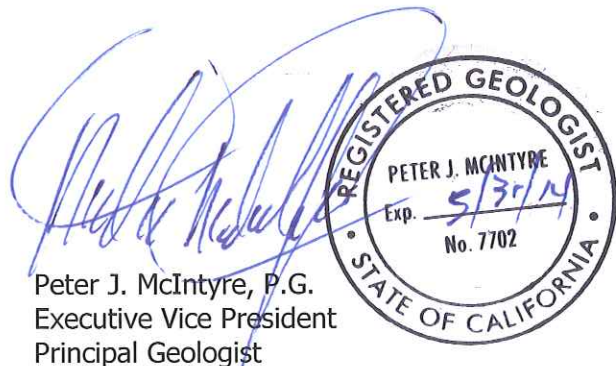 REGISTERED GEOLOGIST
PETER J. MCINTYRE
Exp. 5/31/14
No. 7702
STATE OF CALIFORNIA
Peter J. McIntyre, P.G.
Executive Vice President
Principal Geologist